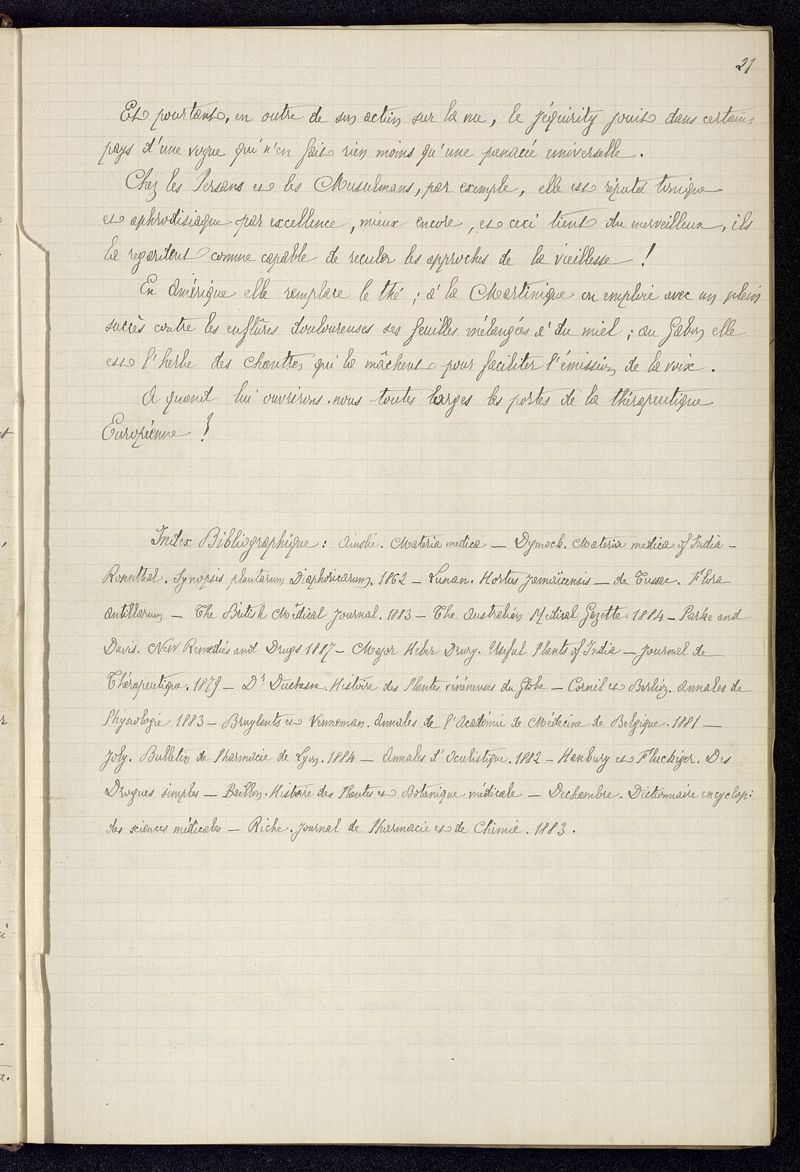 21
Et pourtant, en outre de son action sur la vue, le jéquirity jouit dans certains
pays d'une vogue qui n'en fait rien moins qu'une panacée universelle.
Chez les Persans et les Musulmans, par exemple, elle est réputée tonique
et aphrodisiaque par excellence, mieux encore, et ceci tient du merveilleux, ils
la regardent comme capable de reculer les approches de la vieillesse !
En Amérique elle remplace le thé ; à la Martinique on emploie avec un plein
succès contre les enflûres douloureuses ses feuilles mélangées à du miel ; au Gabon elle
est l'herbe des chantres qui la mâchent pour faciliter l'émission de la voix.
A quand lui ouvrirons-nous toutes larges les portes de la thérapeutique
Européenne !
Index Bibliographique : Ainslie. Materia medica — Dymock. Materia medica of India —
Rosenthal. Synopsis plantarum Diaphoricarum. 1862 — Lunan. Hortus Jamaïcensis — de Tussac. Flora
Antillarum — The British Médical Journal. 1883 — The Australian Médical Gazette. 1884 — Parke and
Davis. New Remedies and Drugs 1887 — Major Heber Drury. Useful Plants of India — Journal de
Thérapeutique. 1879 — Dr Duchasne. Histoire des Plantes vénéneuses du Globe — Cornil et Berlioz. Annales de
Physiologie 1883 — Bruylants et Venneman. Annales de l'Académie de Médecine de Belgique. 1881 —
Joly. Bulletin de Pharmacie de Lyon. 1884 — Annales d'Oculistique. 1882 — Hanbury et Fluckiger. Des
Drogues simples — Baillon. Histoire des Plantes et Botanique médicale — Dechambre. Dictionnaire encyclop:
des sciences médicales — Riche. Journal de Pharmacie et de Chimie. 1883.